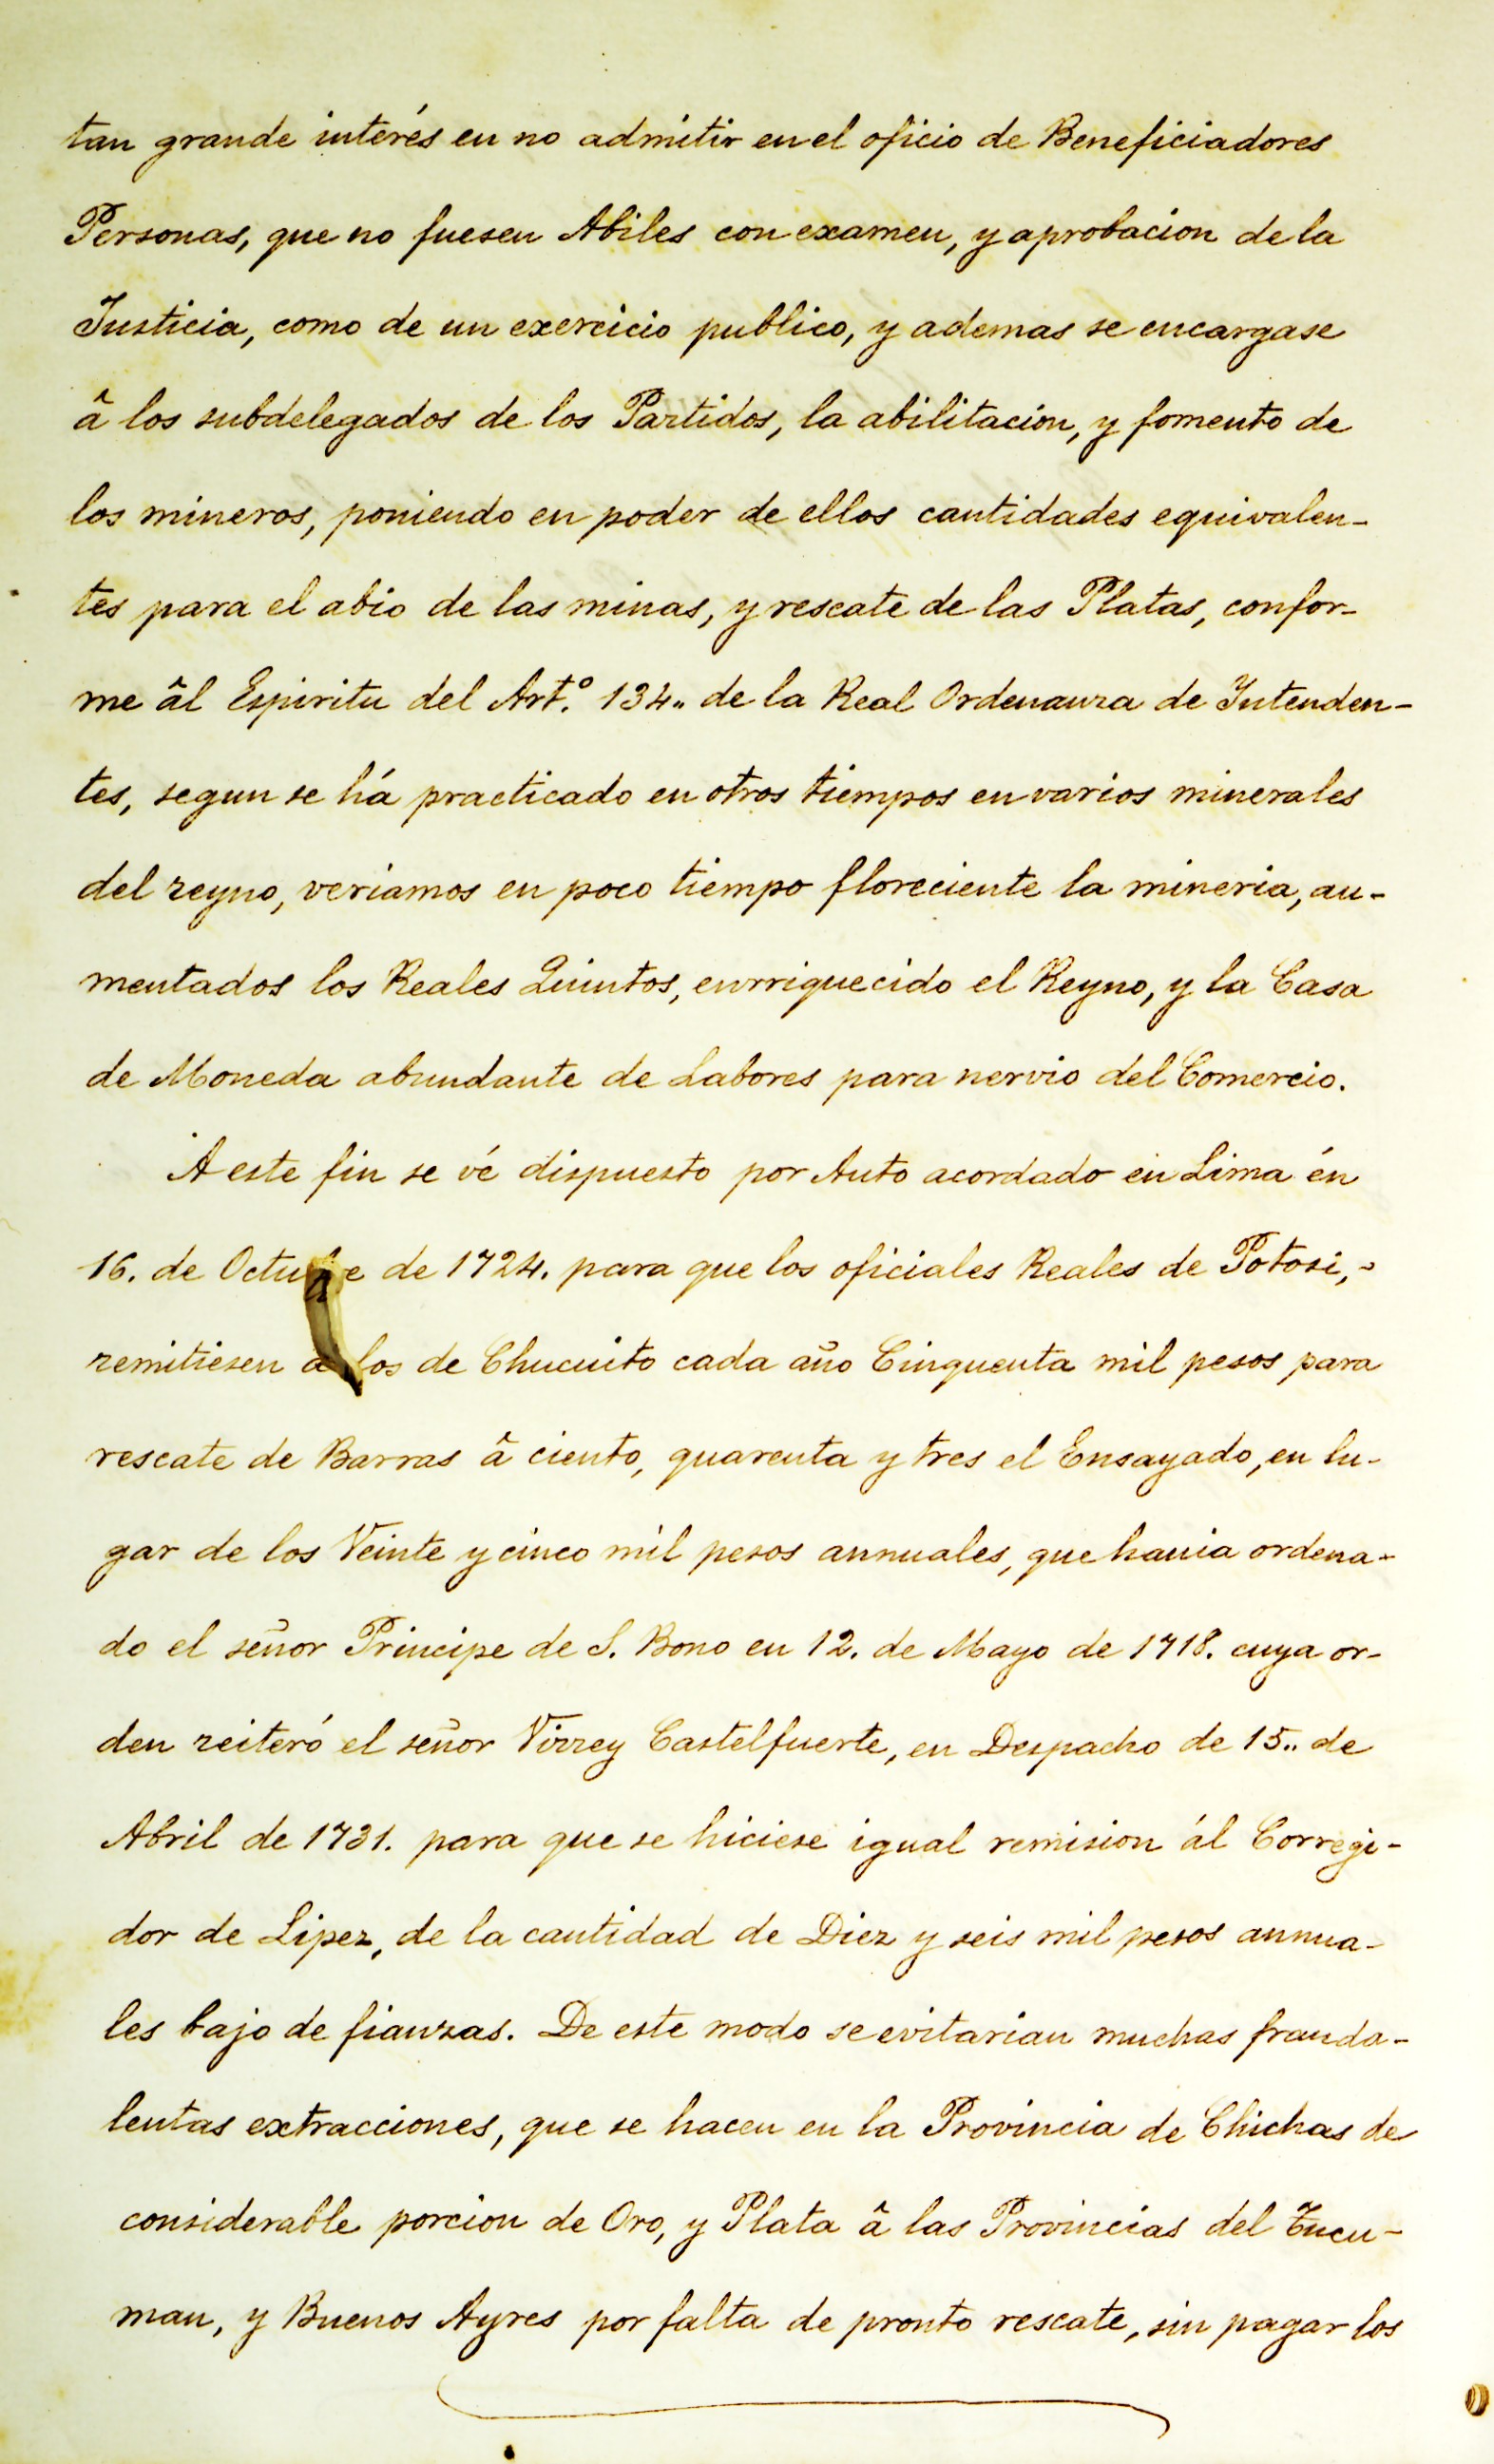 tan grande interés en no admitir en el oficio de Beneficiadores
Personas, que no fuesen Abiles con examen, y aprobacion de la
Justicia, como de un exercicio publico, y ademas se encargase
â los subdelegados de los Partidos, la abilitacion, y fomento de
los mineros, poniendo en poder de ellos cantidades equivalen-
tes para el abio de las minas, y rescate de las Platas, confor-
me âl Espiritu del Art.º 134.. de la Real Ordenanza de Yntenden-
tes, segun se há practicado en otros tiempos en varios minerales
del reyno, veriamos en poco tiempo floreciente la mineria, au-
mentados los Reales Quintos, enrriquecido el Reyno, y la Casa
de Moneda abundante de Labores para nervio del Comercio.
A este fin se vé dispuesto por Auto acordado en Lima én
16. de Octubre de 1724. para que los oficiales Reales de Potosi,-
remitiesen a los de Chucuito cada año Cinquenta mil pesos para
rescate de Barras â ciento, quarenta y tres el Ensayado, en lu-
gar de los Veinte y cinco mil pesos annuales, que havia ordena-
do el señor Principe de S. Bono en 12. de Mayo de 1718. cuya or-
den reiteró el señor Virrey Castelfuerte, en Despacho de 15.. de
Abril de 1731. para que se hiciese igual remision ál Corregi-
dor de Lipez, de la cantidad de Diez y seis mil pesos annua-
les bajo de fianzas. De este modo se evitarian muchas frauda-
lentas extracciones, que se hacen en la Provincia de Chichas de
considerable porcion de Oro, y Plata â las Provincias del Tucu-
man, y Buenos Ayres por falta de pronto rescate, sin pagar los